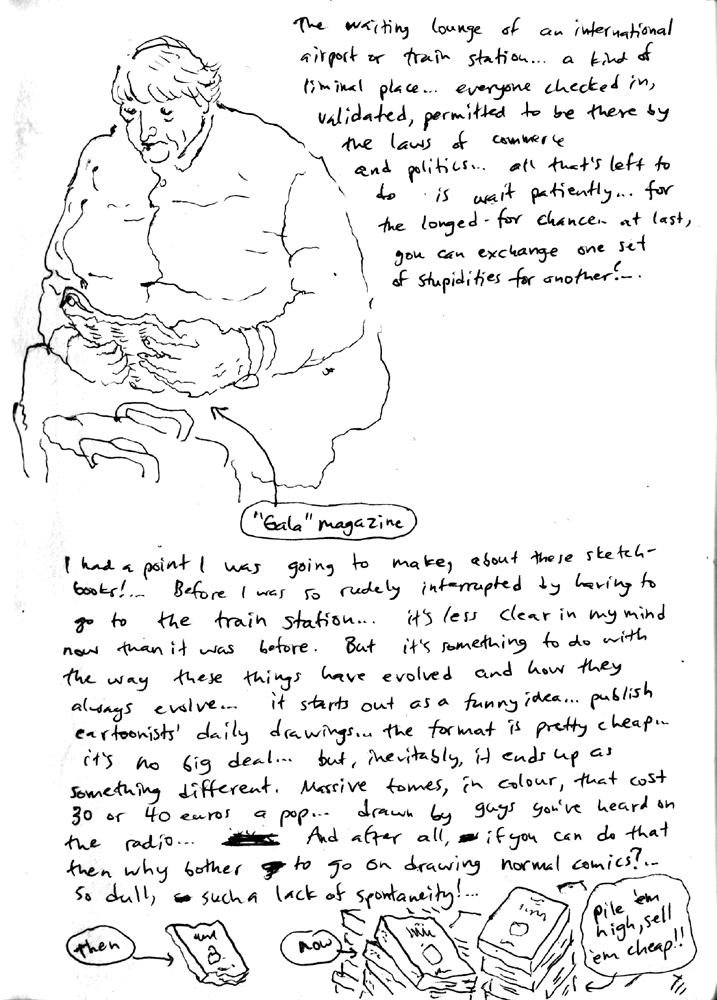 The waiting lounge of an international
airport or train station... a kind of
liminal place... everyone checked in,
validated, permitted to be there by
the laws of commerce
and politics... all that's left to
do is wait patiently... for
the longed-for chance... at last,
you can exchange one set
of stupidities for another!...
"Gala" magazine
I had a point I was going to make, about these sketch-
books!... Before I was so rudely interrupted by having to
go to the train station... it's less clear in my mind
now than it was before. But it's something to do with
the way these things have evolved and how they
always evolve... it starts out as a funny idea... publish
cartoonists' daily drawings... the format is pretty cheap...
it's no big deal... but, inevitably, it ends up as
something different. Massive tomes, in colour, that cost
30 or 40 euros a pop... drawn by guys you've heard on
the radio... And after all, if you can do that
then why bother to go on drawing normal comics?...
so dull, such a lack of spontaneity!...
then
now
pile 'em
high, sell
'em cheap!!